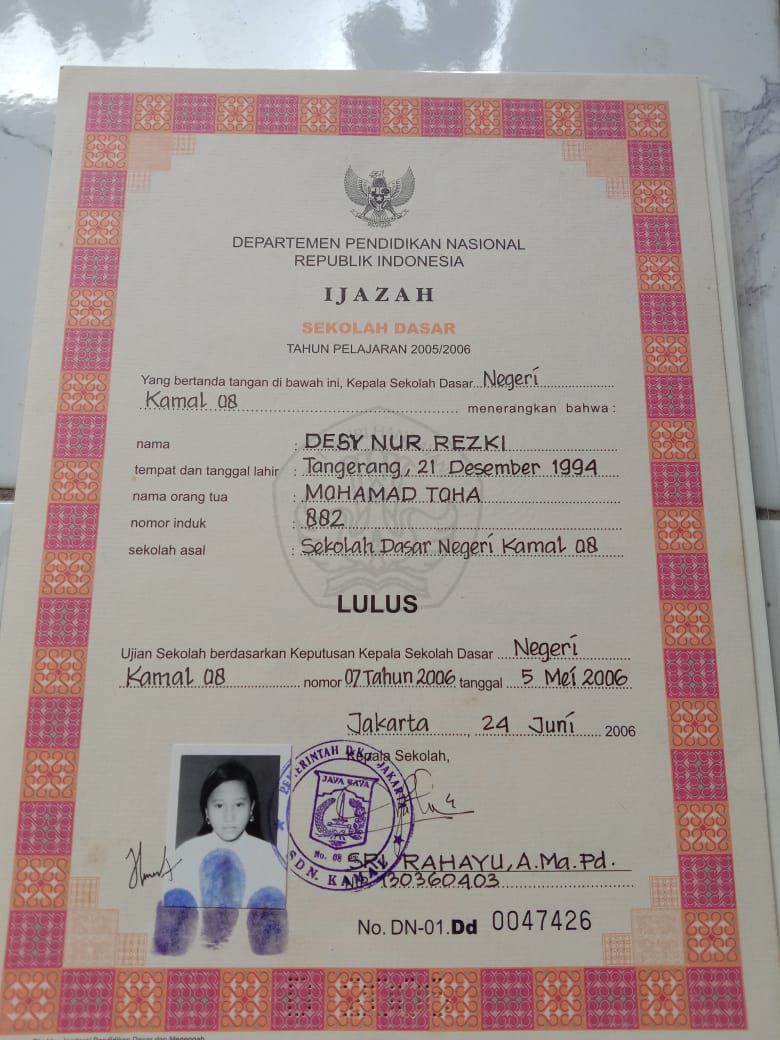 DEPARTEMEN PENDIDIKAN NASIONAL
REPUBLIK INDONESIA
IJAZAH
SEKOLAH DASAR
TAHUN PELAJARAN 2005/2006
Yang bertanda tangan di bawah ini, Kepala Sekolah Dasar Negeri
Kamal 08 menerangkan bahwa :
nama : DESY NUR REZKI
tempat dan tanggal lahir : Tangerang, 21 Desember 1994
nama orang tua : MOHAMAD TOHA
nomor induk : 882
sekolah asal : Sekolah Dasar Negeri Kamal 08
LULUS
Ujian Sekolah berdasarkan Keputusan Kepala Sekolah Dasar Negeri
Kamal 08 nomor 07 Tahun 2006 tanggal 5 Mei 2006
Jakarta, 24 Juni 2006
Kepala Sekolah,
PEMERINTAH DKI JAKARTA
JAYA RAYA
No. 08
SDN. KAMAL
SRI RAHAYU, A.Ma.Pd.
NIP. 130360403
No. DN-01.Dd 0047426